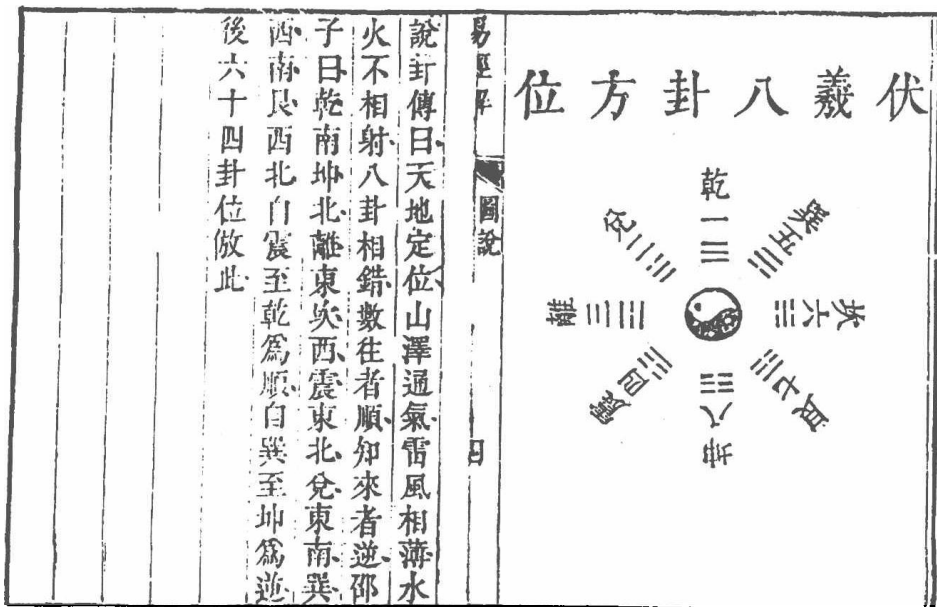 伏羲八卦方位
乾一
兌二
離三
震四
巽五
坎六
艮七
坤八
易經解
圖說
說卦傳曰天地定位山澤通氣雷風相薄水
火不相射八卦相錯數往者順知來者逆邵
子曰乾南坤北離東坎西震東北兌東南巽
西南艮西北自震至乾爲順自巽至坤爲逆
後六十四卦位倣此